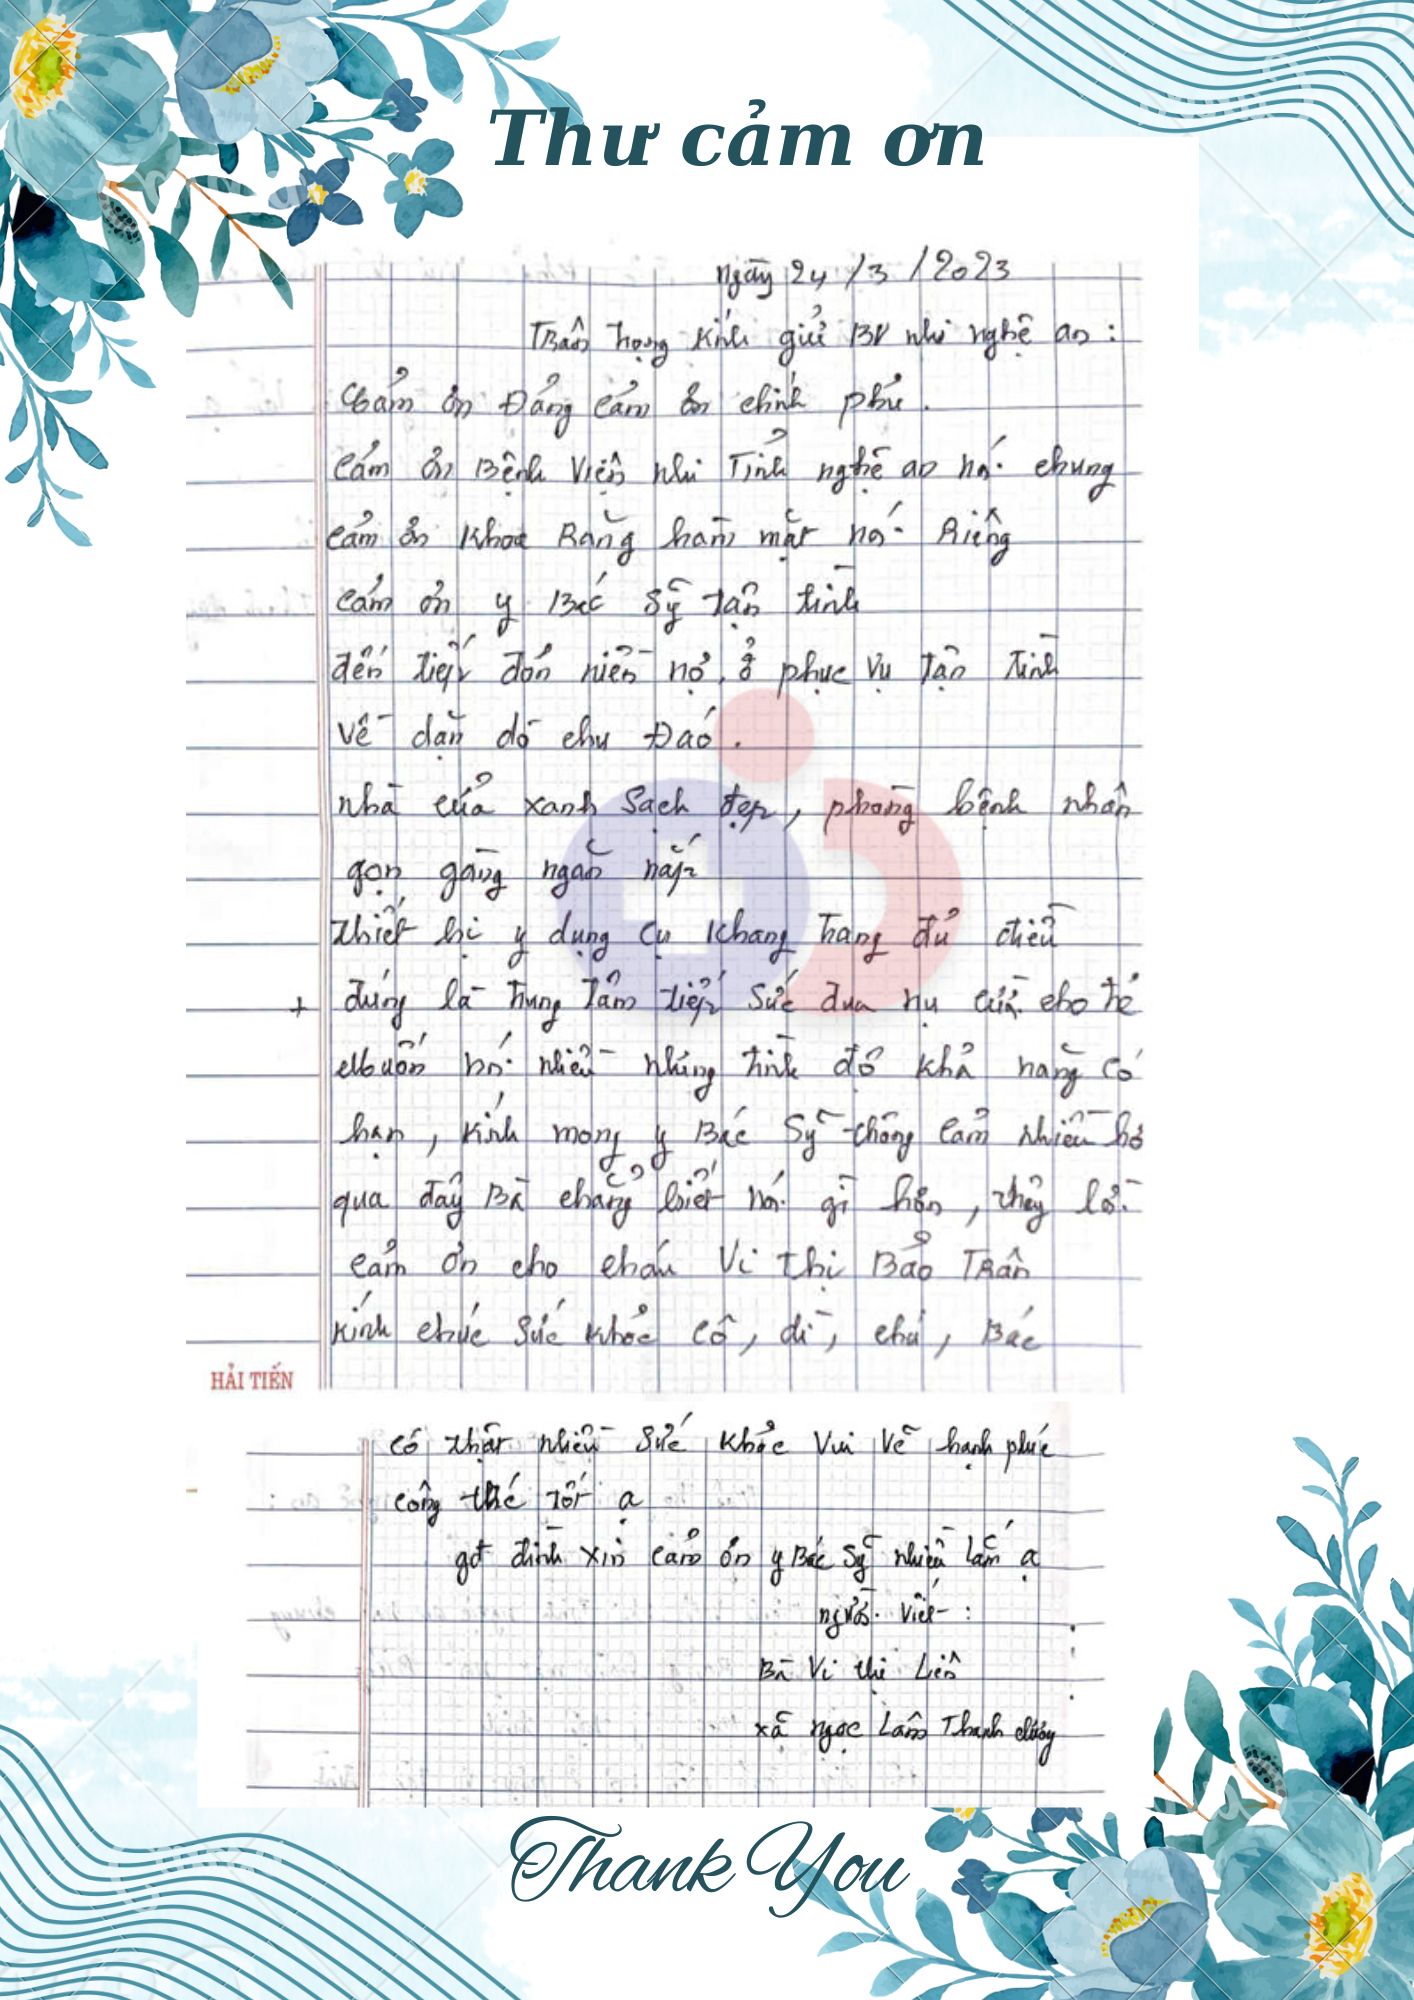 Thư cảm ơn
Ngày 24/3/2023
Trân trọng kính gửi BV nhi nghệ an :
Cảm ơn Đảng cảm ơn chính phủ.
Cảm ơn Bệnh Viện nhi Tỉnh nghệ an nói chung
Cảm ơn Khoa Răng hàm mặt nói Riêng
Cảm ơn y Bác Sỹ tận tình
đến tiếp đón niềm nở, ở phục vụ tận tình
về dặn dò chu Đáo.
nhà cửa xanh sạch đẹp, phòng bệnh nhân
gọn gàng ngăn nắp
thiết bị y dụng cụ khang trang đủ điều
+ đúng là trung tâm tiếp sức đưa nụ cười cho trẻ
Muốn nói nhiều nhưng trình độ khả năng có
hạn, kính mong y Bác Sỹ thông cảm nhiều hơ
qua đây Bà chẳng biết nói gì hơn, thấy lời
cảm ơn cho cháu Vi Thị Bảo Trân
Kính chúc sức khỏe cô, dì, chú, Bác
HẢI TIẾN
có thật nhiều sức khỏe vui vẽ hạnh phúc
công tác tốt ạ
gđ đình xin cảm ơn y Bác Sỹ nhiều lắm ạ
người viết :
Bà Vi thị Liên
xã ngọc Lâm Thanh chương
Thank You